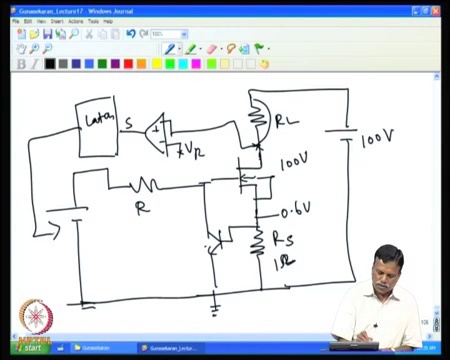 Gunasekaran_Lecture17 - Windows Journal
File Edit View Insert Actions Tools Help
100%
B I
Latch S
+
VR
RL
100V
100V
R
0.6V
RS
1Ω
NPTEL
start
Gunasekaran
Gunasekaran_Lectur...